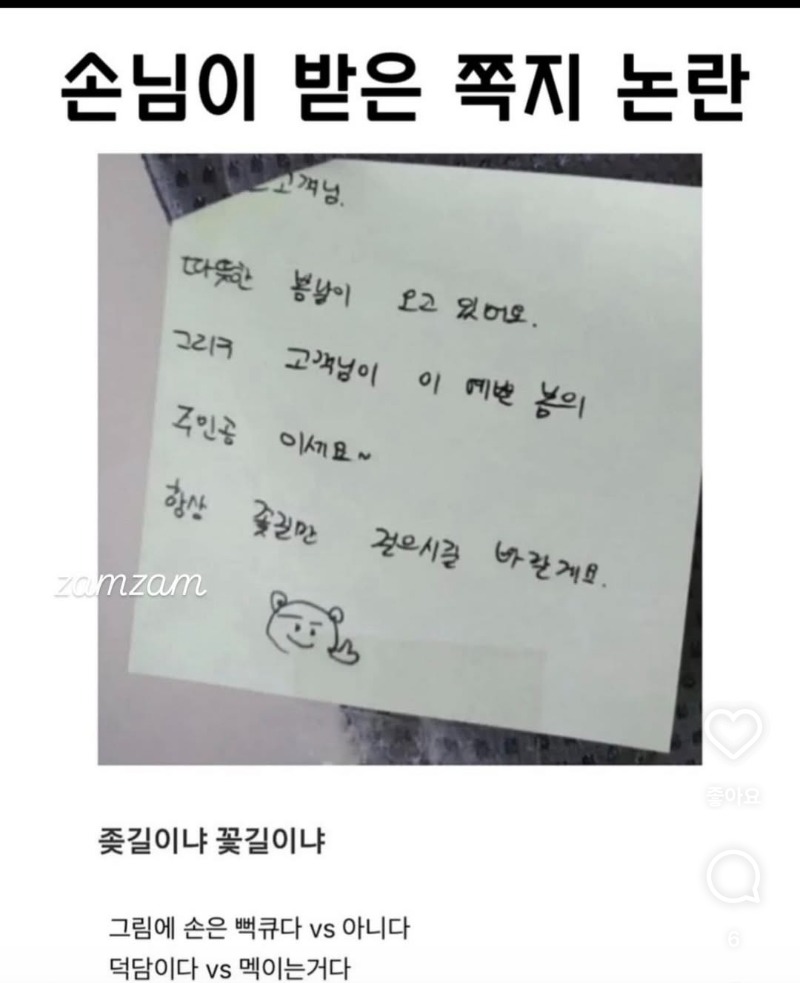 손님이 받은 쪽지 논란
고객님.
따뜻한 봄날이 오고 있어요.
그리구 고객님이 이 예쁜 봄의
주인공 이세요~
항상 꽃길만 걸으시길 바랄게요.
zamzam
좋아요
좆길이냐 꽃길이냐
6
그림에 손은 뻑큐다 vs 아니다
덕담이다 vs 멕이는거다